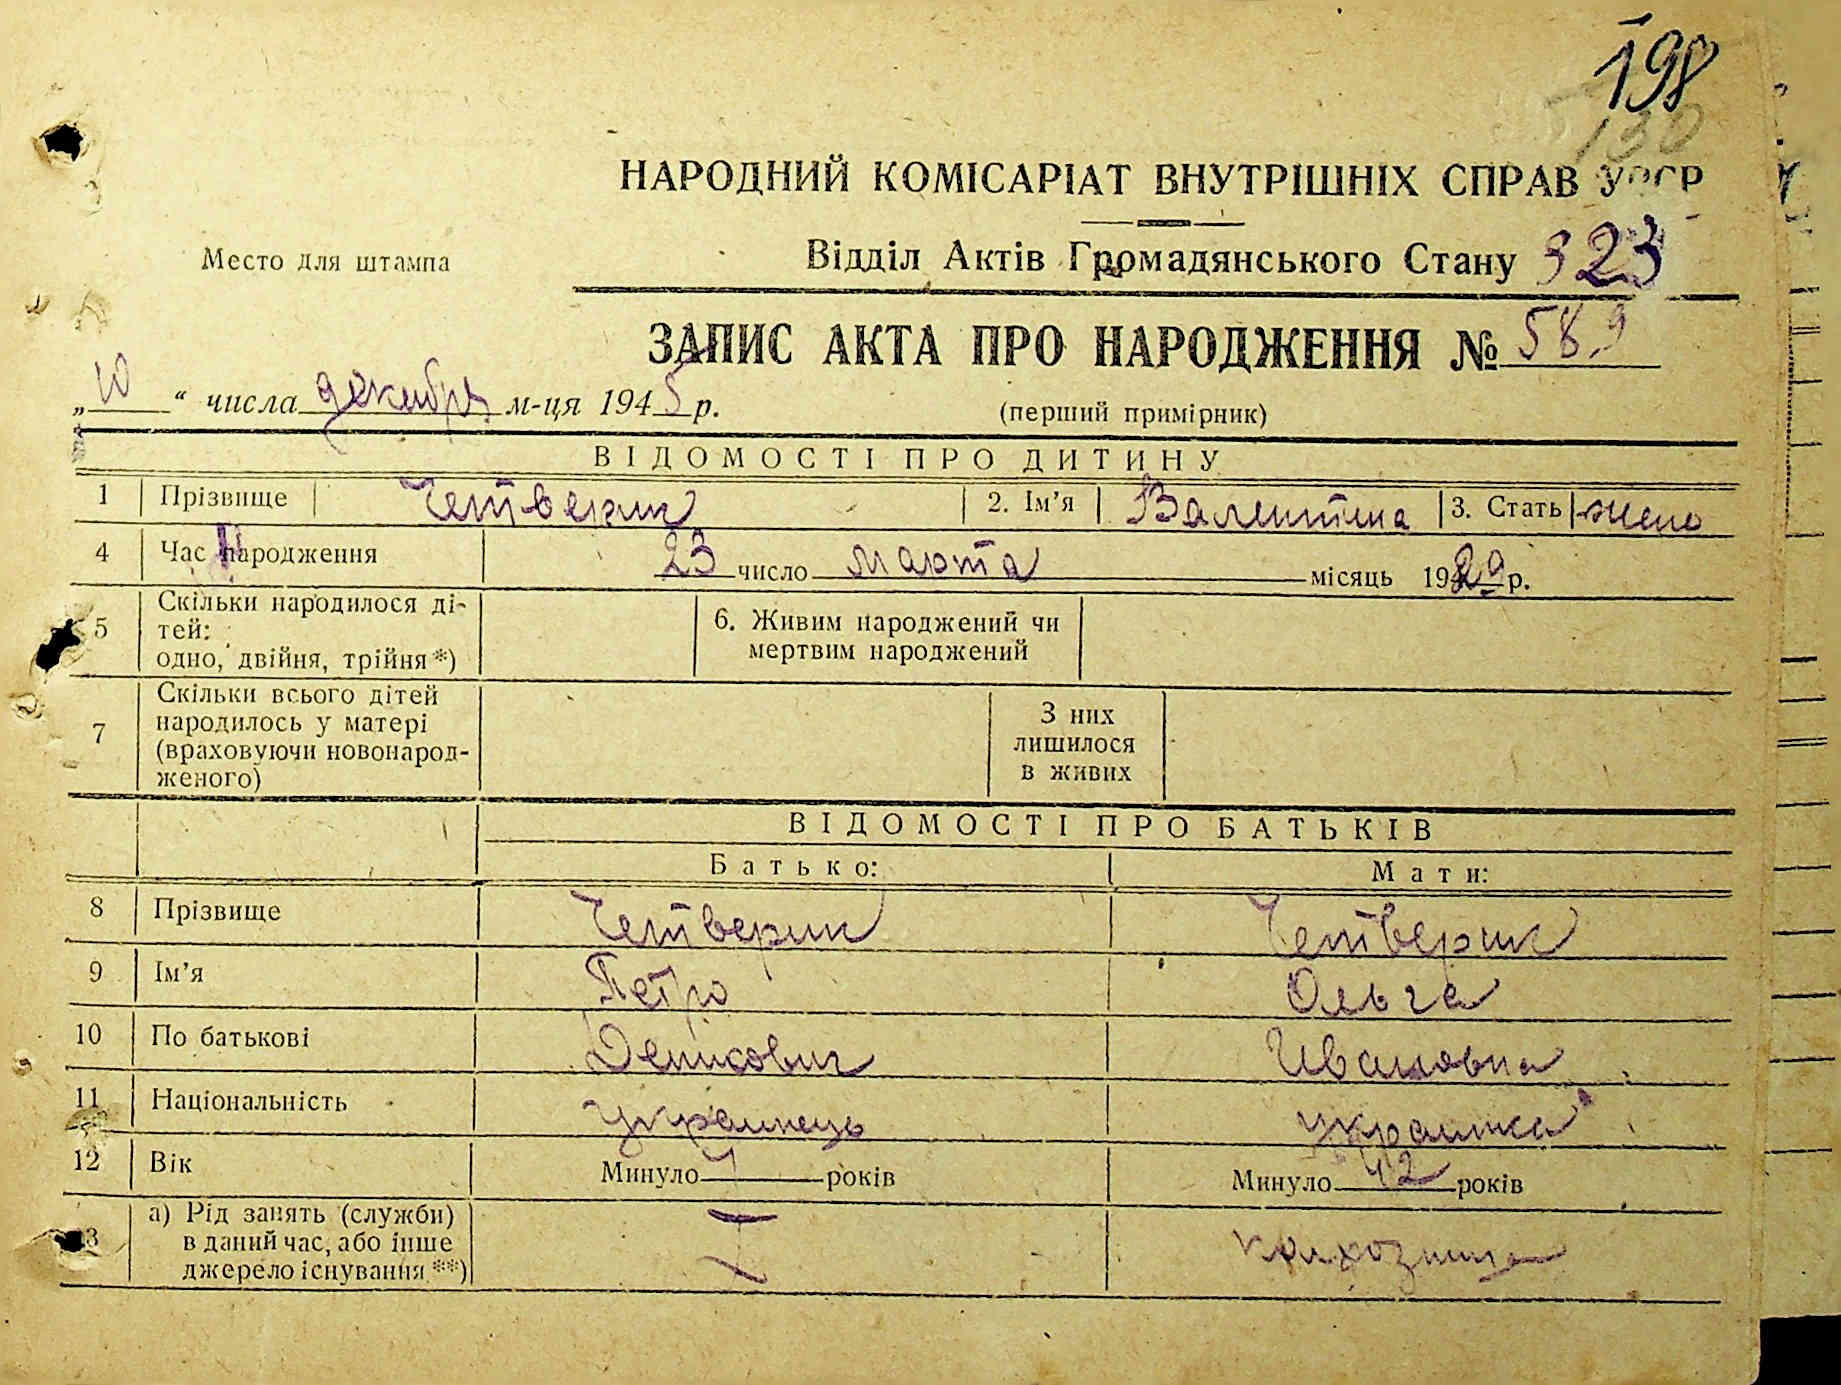 198
130
НАРОДНИЙ КОМІСАРІАТ ВНУТРІШНІХ СПРАВ УРСР
Место для штампа
Відділ Актів Громадянського Стану 323
ЗАПИС АКТА ПРО НАРОДЖЕННЯ № 589
„10“ числа декабря м-ця 1945 р.
(перший примірник)
ВІДОМОСТІ ПРО ДИТИНУ
1 Прізвище Четверик 2. Ім'я Валентина 3. Стать жено
4 Час народження 23 число марта місяць 1929 р.
5 Скільки народилося ді-
тей:
одно, двійня, трійня*)
6. Живим народжений чи
мертвим народжений
7 Скільки всього дітей
народилось у матері
(враховуючи новонарод-
женого)
З них
лишилося
в живих
ВІДОМОСТІ ПРО БАТЬКІВ
Батько: Мати:
8 Прізвище Четверик Четверик
9 Ім'я Петро Ольга
10 По батькові Денисович Ивановна
11 Національність украинець украинка
12 Вік Минуло років Минуло 42 років
13 а) Рід занять (служби)
в даний час, або інше
джерело існування **)
колхозница